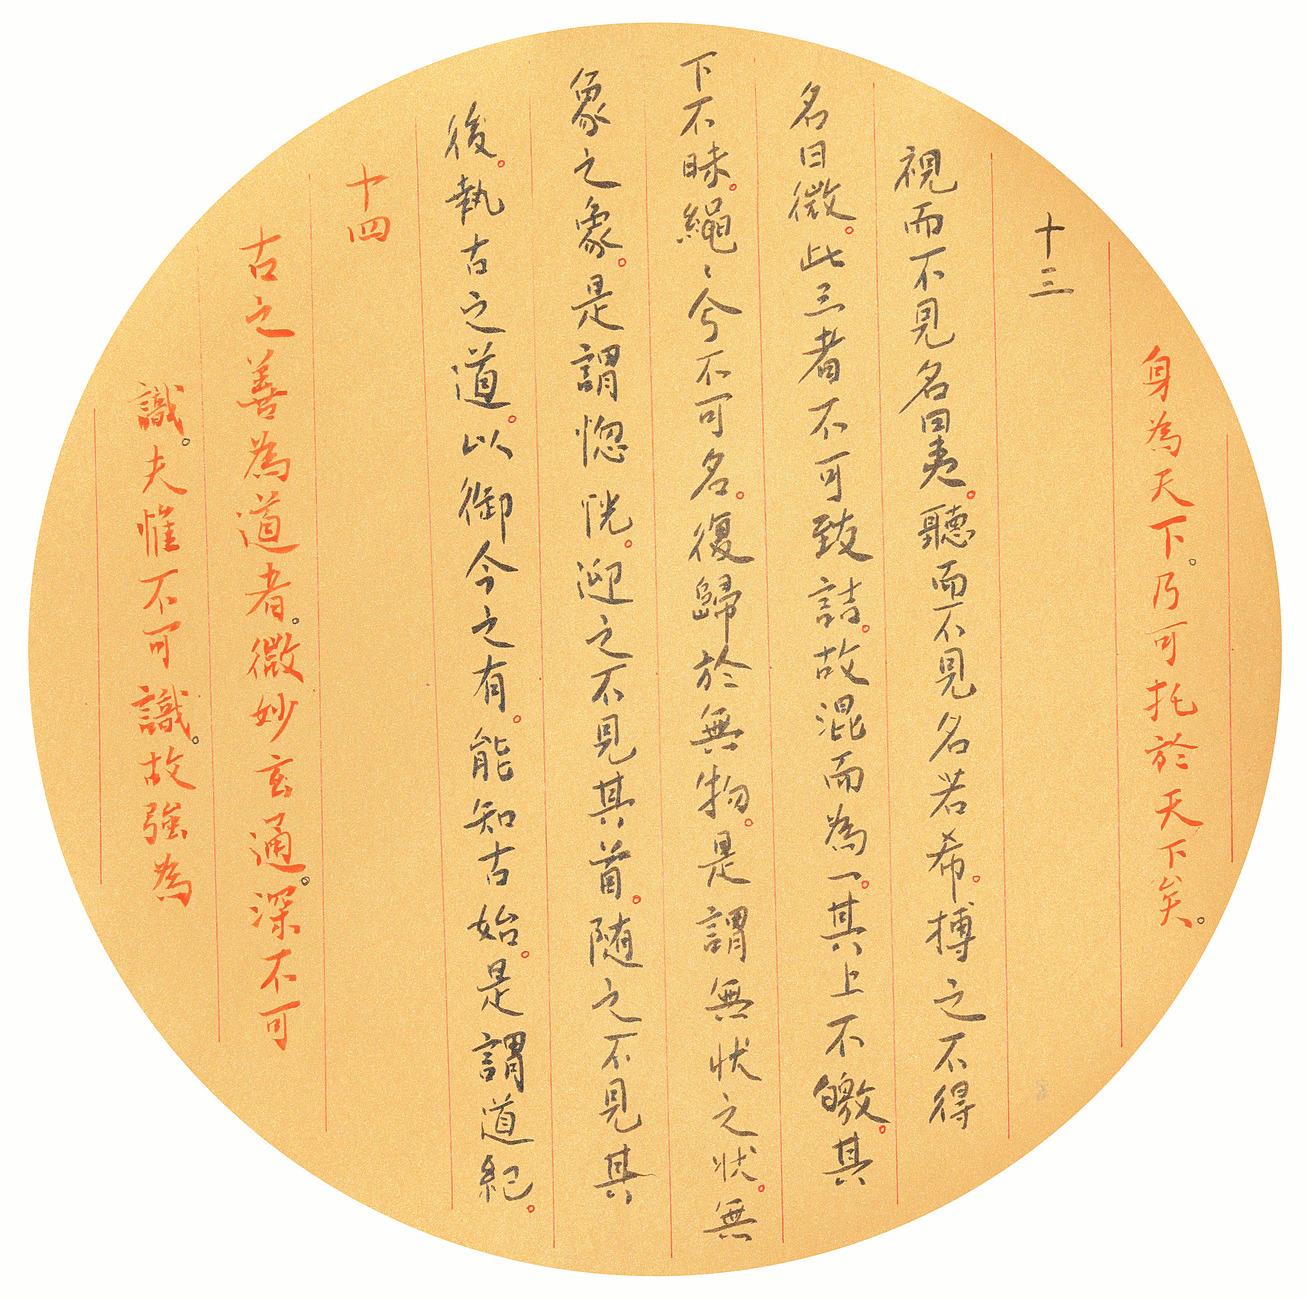 身為天下。乃可托於天下矣。
十三
視而不見名曰夷。聽而不見名若希。搏之不得
名曰微。此三者不可致詰。故混而為一。其上不皦。其
下不昧。繩〻兮不可名。復歸於無物。是謂無狀之狀。無
象之象。是謂惚恍。迎之不見其首。随之不見其
後。執古之道。以御今之有。能知古始。是謂道紀。
十四
古之善為道者。微妙玄通。深不可
識。夫惟不可識。故強為